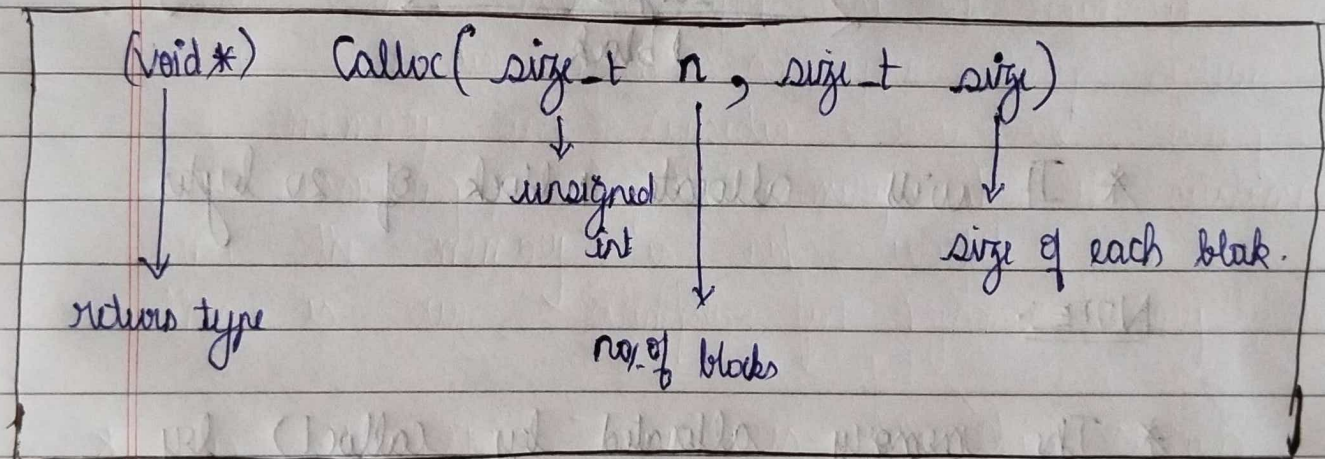 (void *) Calloc( size_t n, size_t size)
unsigned
int
size of each blak.
return type
no. of blocks